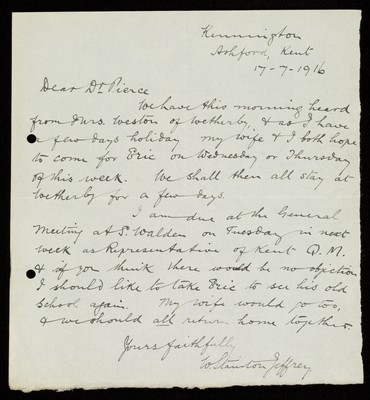 Kennington
Ashford, Kent
17-7-1916
Dear Dr Pierce
We have this morning heard
from Mrs. Weston of Wetherby, & as I have
a few days holiday my wife & I both hope
to come for Eric on Wednesday or Thursday
of this week. We shall then all stay at
Wetherby for a few days.
I am due at the General
Meeting at S. Walden on Tuesday in next
week as Representative of Kent Q.M.
& if you think there would be no objection
I should like to take Eric to see his old
School again. My wife would go too,
& we should all return home together.
Yours faithfully
W. Stanton Jeffrey